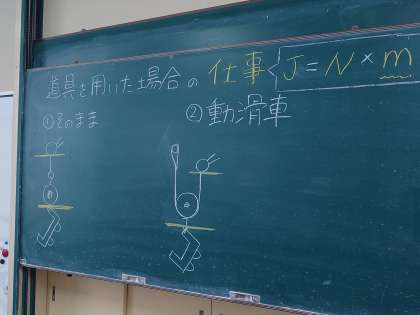 道具を用いた場合の仕事 J=N×m
①そのまま
②動滑車